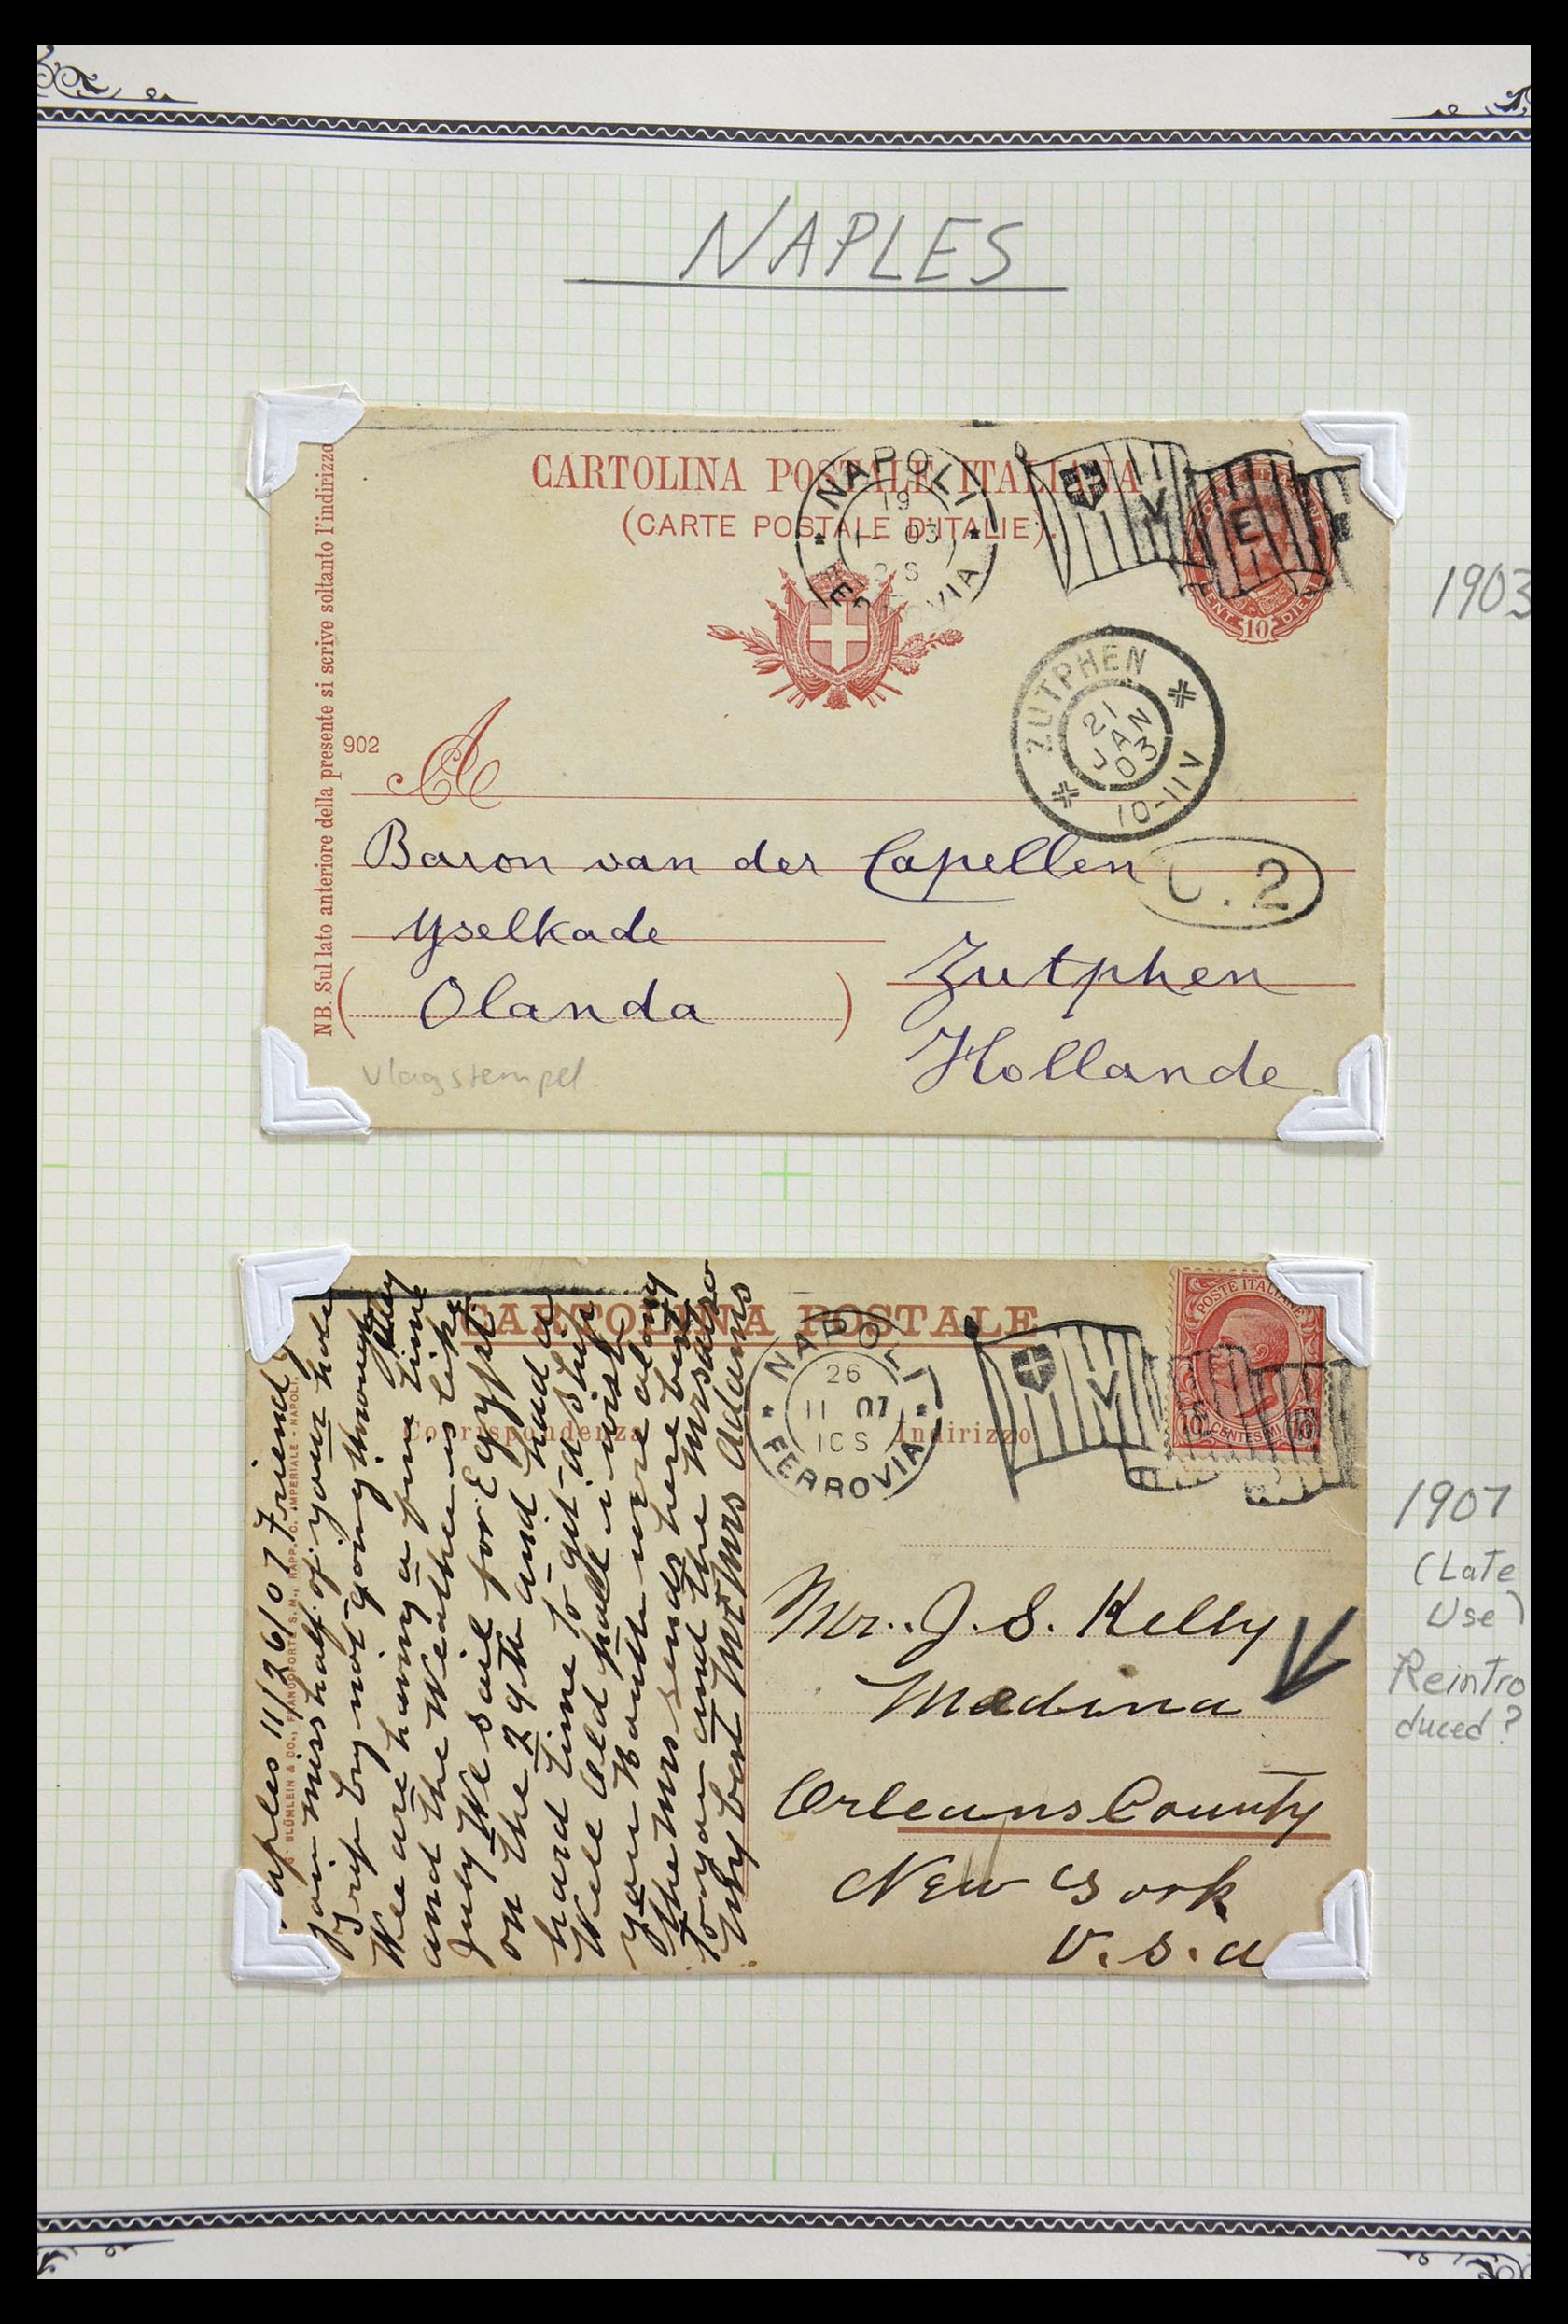 NAPLES
CARTOLINA POSTALE ITALIANA
(CARTE POSTALE D'ITALIE).
NAPOLI
19
1- 03
FERROVIA
V E
CENT. 10 DIECI
1903
NB. Sul lato anteriore della presente si scrive soltanto l'indirizzo
902
A
ZUTPHEN
21
JAN
03
10-11V
Baron van der Capellen
2
Yselkade
Zutphen
( Olanda )
Hollande
vlagstempel.
CARTOLINA POSTALE
Corrispondenza
Indirizzo
NAPOLI
26
11 07
10S
FERROVIA
V
POSTE ITALIANE
10 CENTESIMI 10
aples 11/26/07 Friend J
you miss half of your hole
Trip by not going through Italy
We are having a fine time
and the Weather is like
July We sail for Egypt
on the 29th and had a
hard time to get a ship
Well Old pall i wish
you Both were along
the Mrs sends here best
to you and the Mrs also
My best Mr Mrs Adams
BLÜMLEIN & CO., FRANCOFORTE S. M., RAPP. C. IMPERIALE - NAPOLI.
Mr. J. S. Kelly
Medina
Orleans County
New York
U.S.a
1907
(Late
Use)
Reintro
duced?